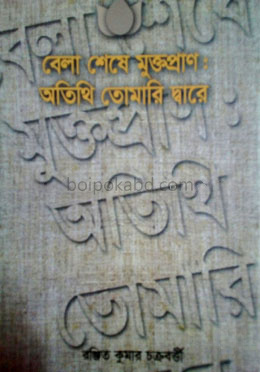 বেলা শেষে
বেলা শেষে মুক্তপ্রাণ :
অতিথি তোমারি দ্বারে
মুক্তপ্রাণ :
boipokabd.com
অতিথি
তোমারি
রঞ্জিত কুমার চক্রবর্ত্তী